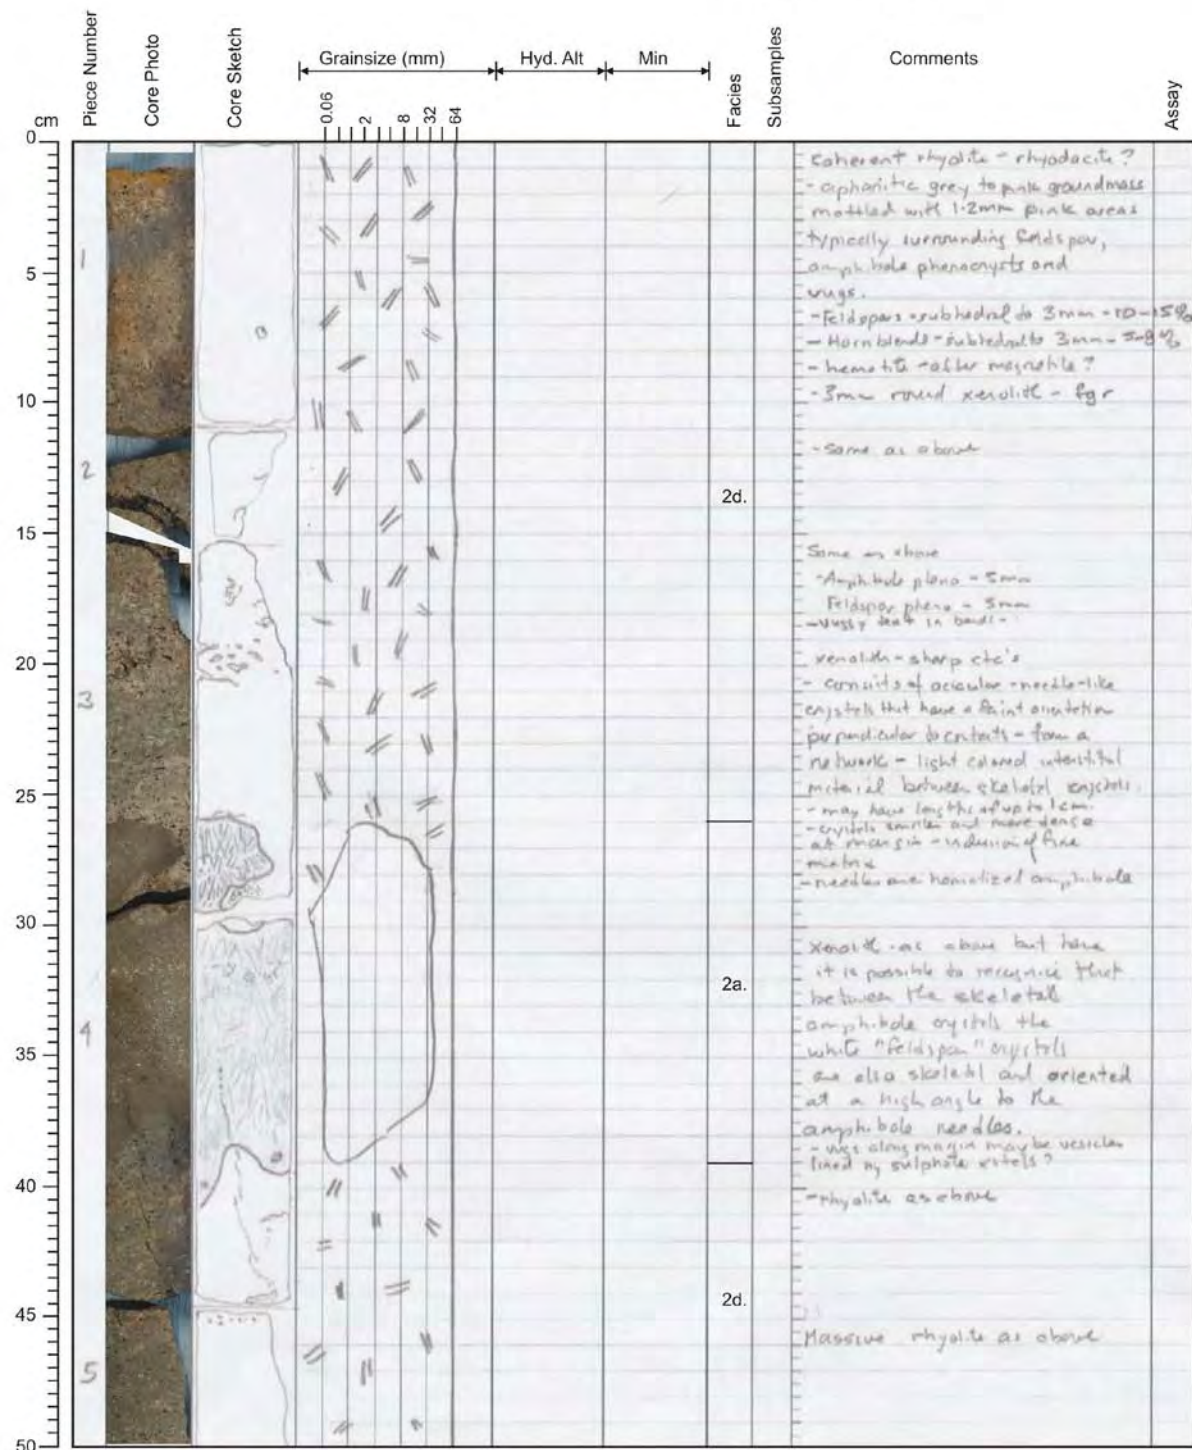 Piece Number
Core Photo
Core Sketch
Grainsize (mm)
Hyd. Alt
Min
Facies
Subsamples
Comments
Assay
cm
0.06 2 8 32 64
0
5
10
15
20
25
30
35
40
45
50
1
2
3
4
5
2d.
2a.
2d.
Coherent rhyolite - rhyodacite?
- aphanitic grey to pink groundmass
mottled with 1-2mm pink areas
typically surrounding feldspar,
amphibole phenocrysts and
vugs.
- Feldspars - subhedral to 3mm - 10-15%
- Hornblende - subhedral to 3mm - 5-8%
- hematite - after magnetite?
- 3mm round xenolith - fgr
- Same as above
Same as above
- Amphibole pheno - 5mm
Feldspar pheno - 5mm
- vuggy in bands -
xenolith - sharp ctc's
- consists of acicular - needle-like
crystals that have a faint orientation
perpendicular to contacts - form a
network - light colored interstitial
material between skeletal crystals.
- may have lengths of up to 1cm.
- crystals smaller and more dense
at margin - inclusion of fine
matrix
- needles are hematized amphibole
xenolith - as above but here
it is possible to recognise that
between the skeletal
amphibole crystals the
white "feldspar" crystals
are also skeletal and oriented
at a high angle to the
amphibole needles.
- vugs along margin may be vesicles
lined by sulphate xstels?
- rhyolite as above
Massive rhyolite as above